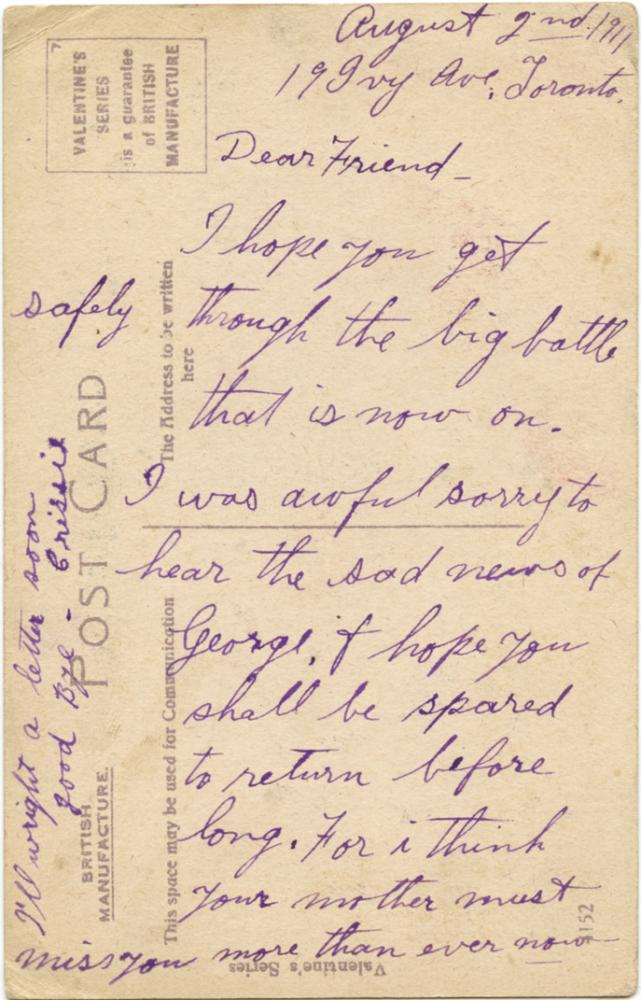 August 2nd. 191
19 Ivy Ave, Toronto.
Dear Friend -
I hope you get
safely through the big battle
that is now on.
I was awful sorry to
hear the sad news of
George. I hope you
shall be spared
to return before
long. For i think
your mother must
miss you more than ever now
I'll wright a letter soon
good Bye - Crissie
7
VALENTINE'S
SERIES
is a guarantee
of BRITISH
MANUFACTURE
POST CARD
The Address to be written
here
This space may be used for Communication
BRITISH
MANUFACTURE.
Valentine's Series
152